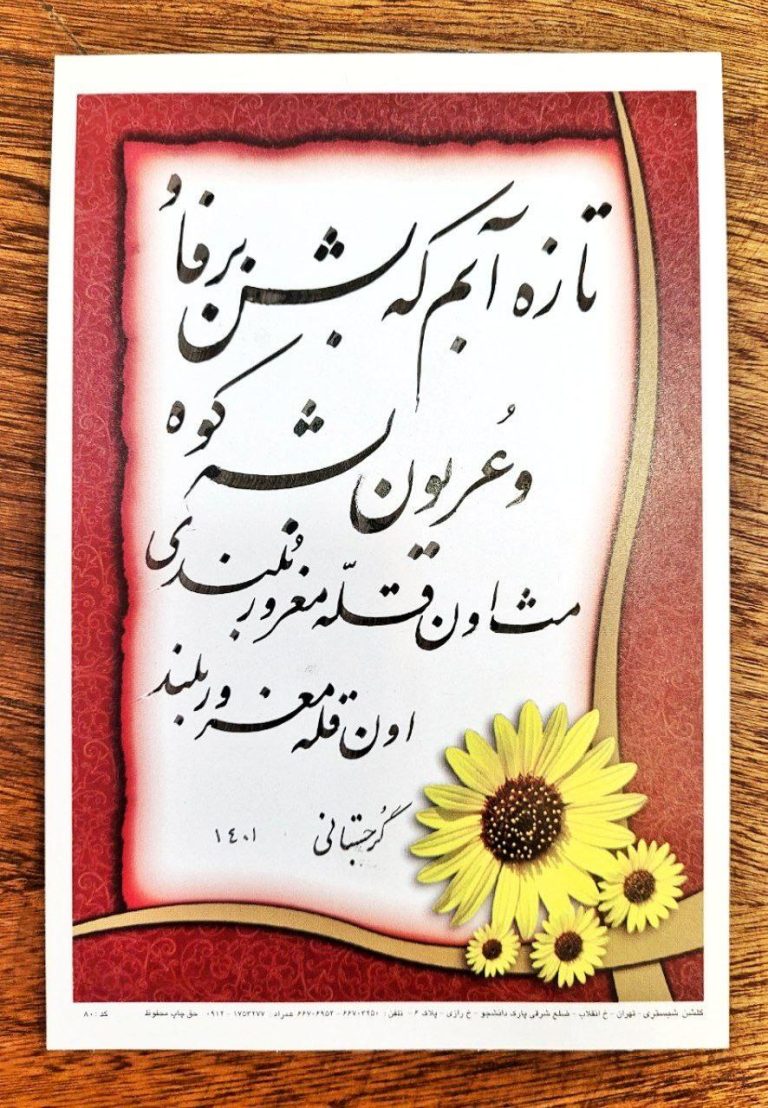 تازه آبم که بشن برفاُ
و عُریون بشه کوه
مث اون قلّه مغرور بُلندی
اون قله مغرور بلند
گُرجستانی ۱۴۰۱
گلشن شبستری - تهران - خ انقلاب - ضلع شرقی پارک دانشجو - خ رازی - پلاک ۶ - تلفن: ۶۶۷۰۳۲۵۰ - ۶۶۷۰۶۹۵۲ همراه: ۱۷۵۳۲۷۷ - ۰۹۱۲ حق چاپ محفوظ کد: ۸۰